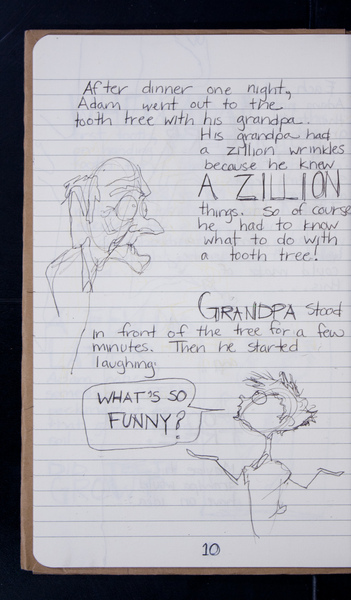 After dinner one night,
Adam went out to the
tooth tree with his grandpa.
His grandpa had
a zillion wrinkles
because he knew
A ZILLION
things. So of course
he had to know
what to do with
a tooth tree!
GRANDPA stood
in front of the tree for a few
minutes. Then he started
laughing.
WHAT'S SO
FUNNY?
10